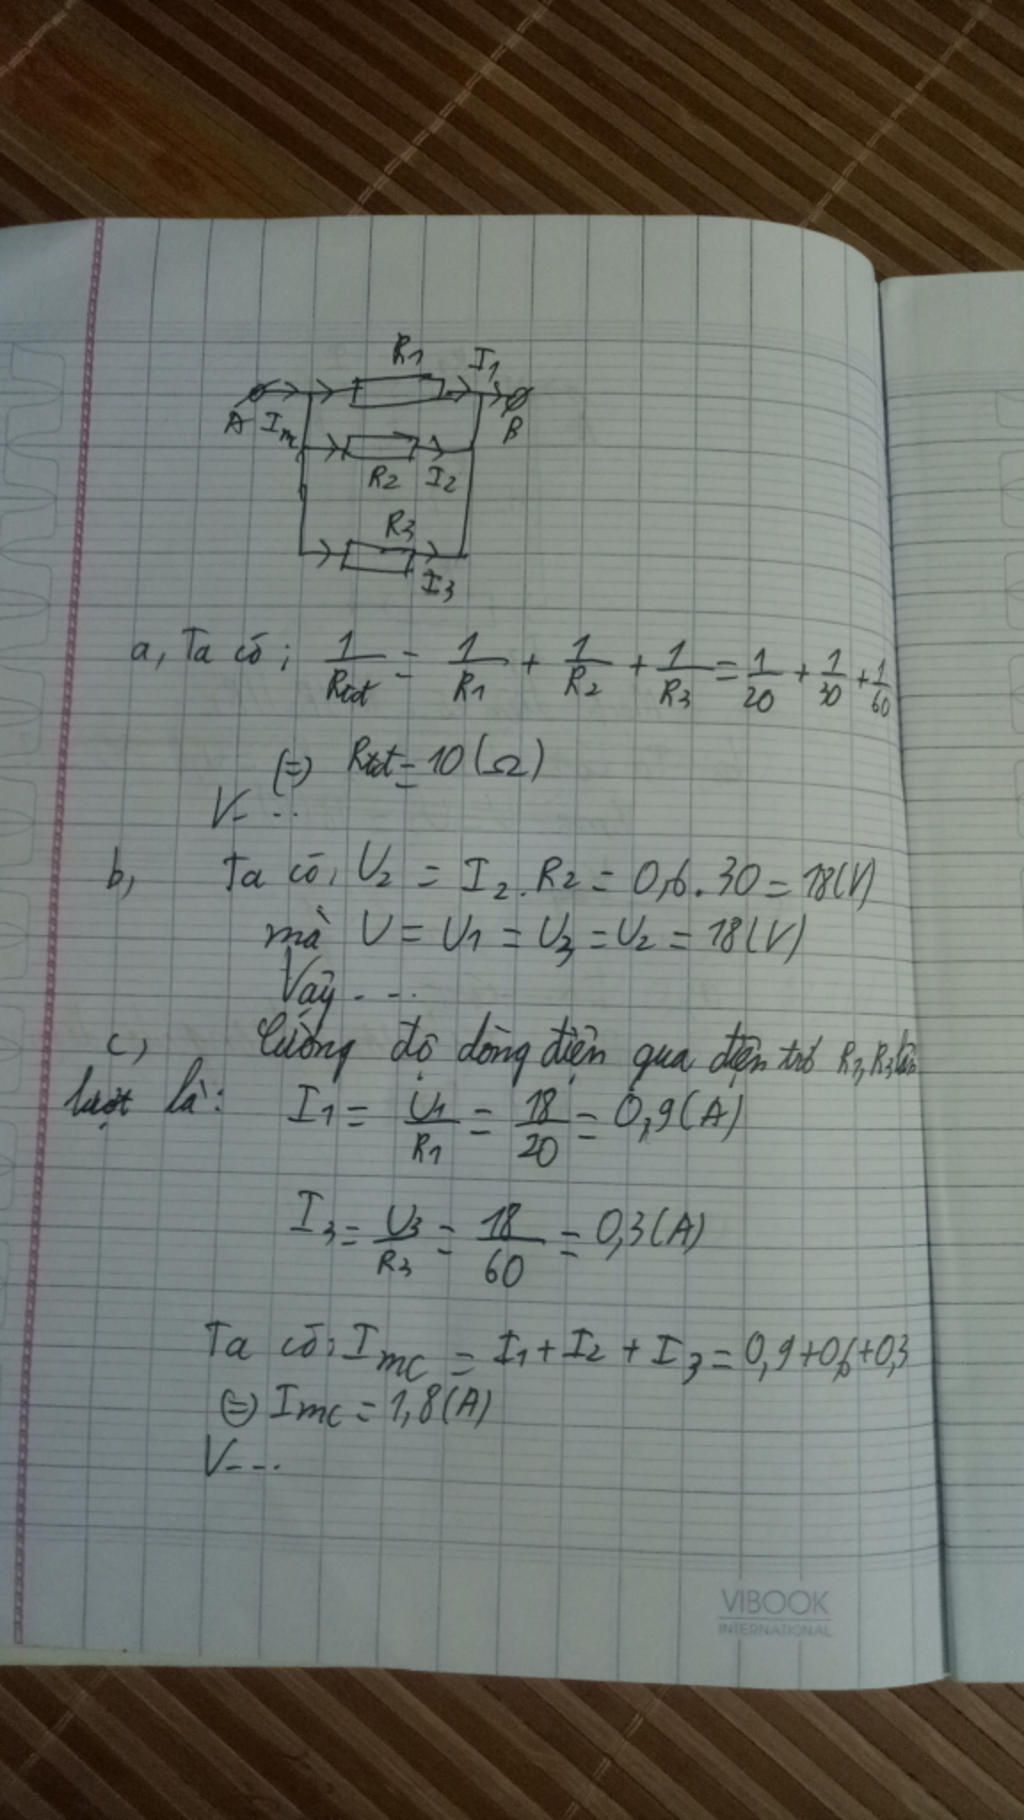 R1 I1
A Im B
R2 I2
R3
I3
a, Ta có; 1/Rtđ = 1/R1 + 1/R2 + 1/R3 = 1/20 + 1/30 + 1/60
(=) Rtđ = 10 (Ω)
V- ..
b, Ta có; U2 = I2. R2 = 0,6. 30 = 18(V)
mà U = U1 = U3 = U2 = 18(V)
Vậy - --
c) Cường độ dòng điện qua điện trở R1, R3 lần
lượt là: I1 = U1/R1 = 18/20 = 0,9(A)
I3 = U3/R3 = 18/60 = 0,3(A)
Ta có; Imc = I1 + I2 + I3 = 0,9+0,6+0,3
(=) Imc = 1,8(A)
V- - -
VIBOOK
INTERNATIONAL